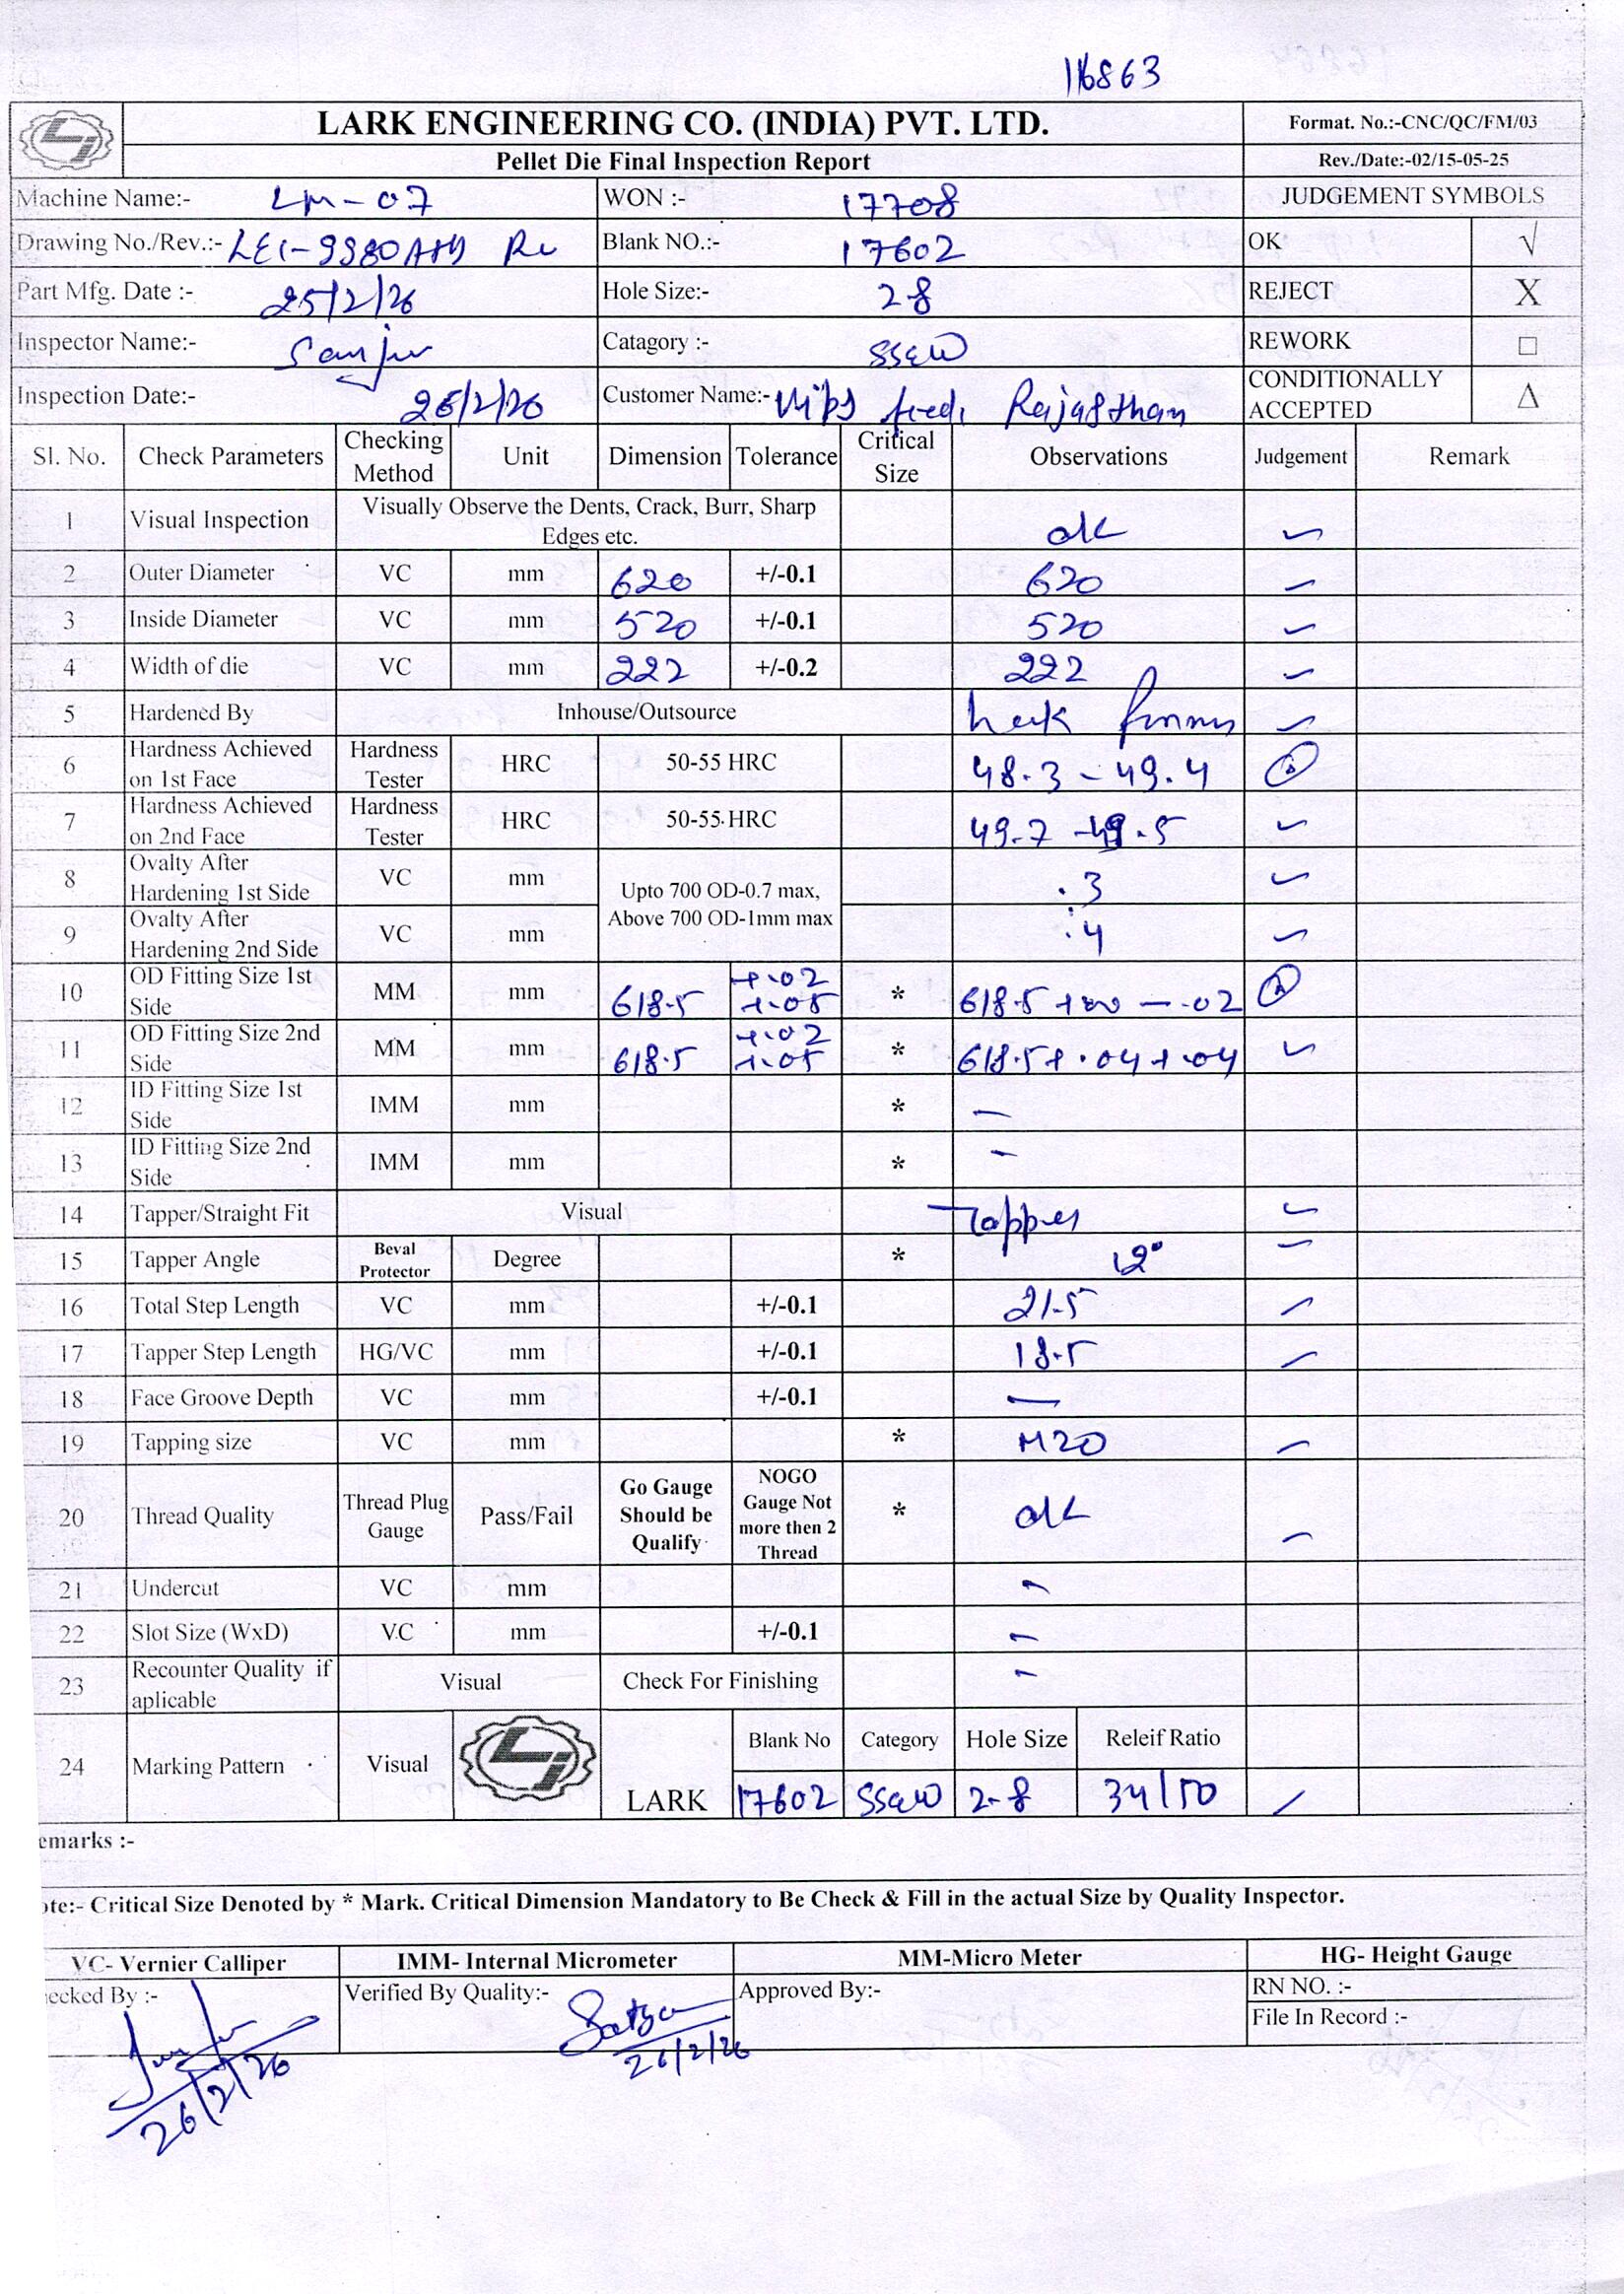 16863
LARK ENGINEERING CO. (INDIA) PVT. LTD.
Format. No.:-CNC/QC/FM/03
Pellet Die Final Inspection Report
Rev./Date:-02/15-05-25
Machine Name:- LM-07 WON :- 17708 JUDGEMENT SYMBOLS
Drawing No./Rev.:- Blank NO.:- 17602 OK √
Part Mfg. Date :- 25/2/26 Hole Size:- 2-8 REJECT X
Inspector Name:- Sanju Catagory :- SS&W REWORK □
Inspection Date:- 26/2/26 Customer Name:- feeds Rajasthan CONDITIONALLY ACCEPTED Δ
Sl. No. Check Parameters Checking Method Unit Dimension Tolerance Critical Size Observations Judgement Remark
1 Visual Inspection Visually Observe the Dents, Crack, Burr, Sharp Edges etc. ok
2 Outer Diameter VC mm 620 +/-0.1 620
3 Inside Diameter VC mm 520 +/-0.1 520
4 Width of die VC mm 222 +/-0.2 222
5 Hardened By Inhouse/Outsource
6 Hardness Achieved on 1st Face Hardness Tester HRC 50-55 HRC 48.3 - 49.4
7 Hardness Achieved on 2nd Face Hardness Tester HRC 50-55 HRC 49.7 - 49.5
8 Ovalty After Hardening 1st Side VC mm Upto 700 OD-0.7 max, Above 700 OD-1mm max .3
9 Ovalty After Hardening 2nd Side VC mm .4
10 OD Fitting Size 1st Side MM mm 618.5 +.02 +.05 * 618.5 +00 -.02
11 OD Fitting Size 2nd Side MM mm 618.5 +.02 +.05 * 618.5+.04+.04
12 ID Fitting Size 1st Side IMM mm * -
13 ID Fitting Size 2nd Side IMM mm * -
14 Tapper/Straight Fit Visual Tapper
15 Tapper Angle Beval Protector Degree * 12°
16 Total Step Length VC mm +/-0.1 21.5
17 Tapper Step Length HG/VC mm +/-0.1 18.5
18 Face Groove Depth VC mm +/-0.1 -
19 Tapping size VC mm * M20
20 Thread Quality Thread Plug Gauge Pass/Fail Go Gauge Should be Qualify NOGO Gauge Not more then 2 Thread * ok
21 Undercut VC mm -
22 Slot Size (WxD) VC mm +/-0.1 -
23 Recounter Quality if aplicable Visual Check For Finishing -
24 Marking Pattern Visual LARK Blank No Category Hole Size Releif Ratio
17602 SS&W 2-8 34/50
emarks :-
ote:- Critical Size Denoted by * Mark. Critical Dimension Mandatory to Be Check & Fill in the actual Size by Quality Inspector.
VC- Vernier Calliper IMM- Internal Micrometer MM-Micro Meter HG- Height Gauge
ecked By :- Verified By Quality:- Approved By:- RN NO. :-
File In Record :-
26/2/26
26/2/26